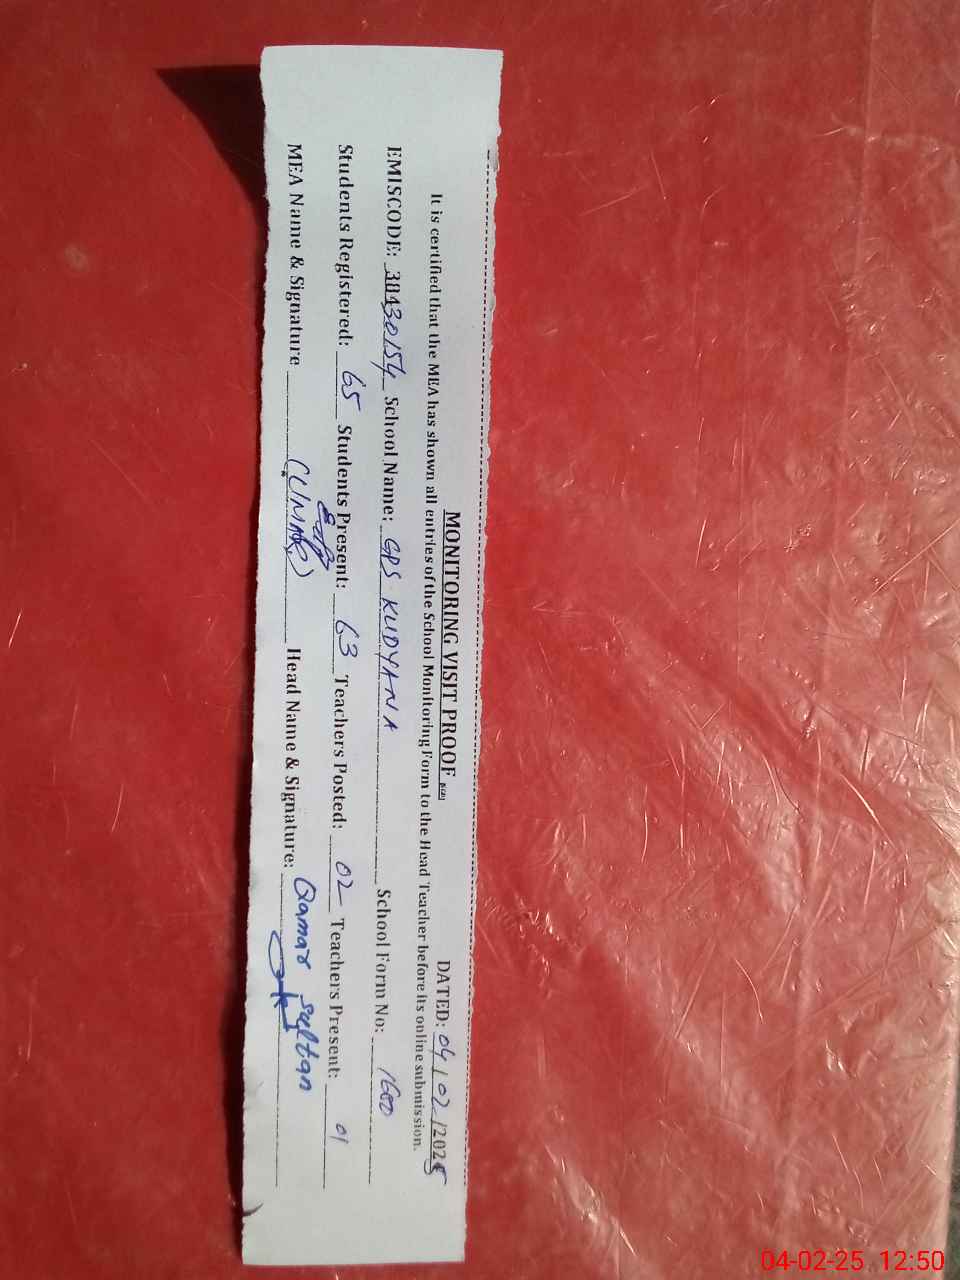 MONITORING VISIT PROOF DATED: 04/02/2025
It is certified that the MEA has shown all entries of the School Monitoring Form to the Head Teacher before its online submission.
EMISCODE: 38430154 School Name: GPS KUDYANA School Form No: 1600
Students Registered: 65 Students Present: 63 Teachers Posted: 02 Teachers Present: 01
MEA Name & Signature (UMAR) Head Name & Signature: Qamar Sultan
04-02-25 12:50